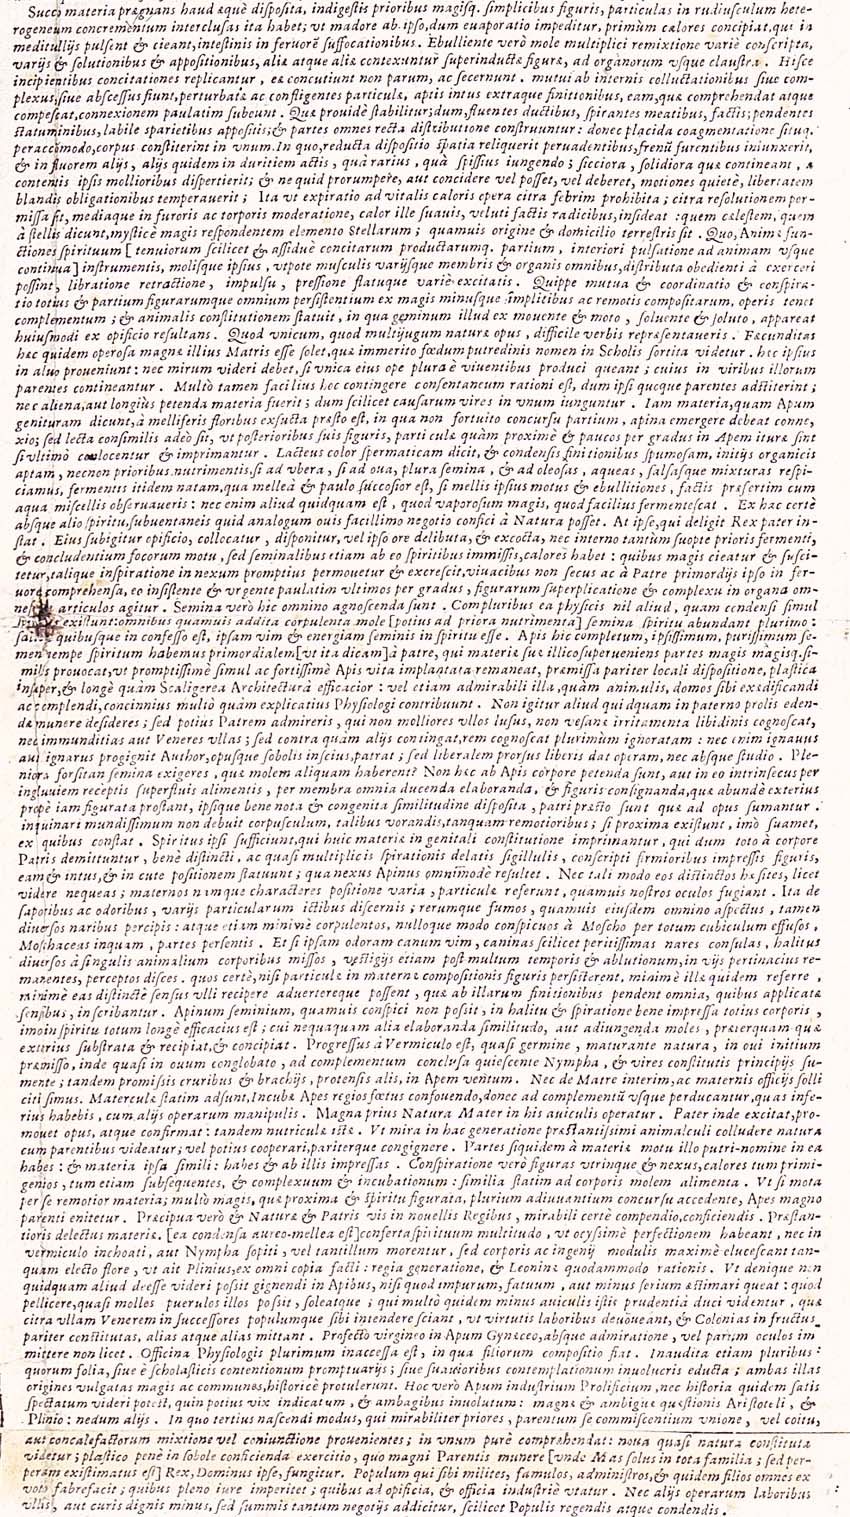 Succo materia prægnans haud æquè disposita, indigestis prioribus magisq. simplicibus figuris, particulas in rudiusculum hete-
rogeneum concrementum interclusas ita habet; vt madore ab ipso, dum euaporatio impeditur, primùm calores concipiat, qui in
meditullijs pulsent & cieant, intestinis in feruorē suffocationibus. Ebulliente verò mole multiplici remixtione variè conscripta,
varijs & solutionibus & appositionibus, aliæ atque aliæ contexuntur superinductæ figuræ, ad organorum vsque claustra. Hisce
incipientibus concitationes replicantur, ea concutiunt non parum, ac secernunt. mutui ab internis colluctationibus siue com-
plexus, siue abscessus fiunt, perturbatæ ac confligentes particulæ, aptis intus extraque finitionibus, eam, quæ comprehendat atque
compescat, connexionem paulatim subeunt. Quæ prouidè stabilitur; dum, fluentes ductibus, spirantes meatibus, factis; pendentes
statuminibus, labile sparietibus appositis; & partes omnes recta distributione construuntur: donec placida coagmentatione situq.
peraccōmodo, corpus constiterint in vnum. In quo, reducta dispositio spatia reliquerit peruadentibus, frenū furentibus iniunxerit,
& in fluorem alijs, alijs quidem in duritiem actis, quà rarius, quà spissius iungendo; sicciora, solidiora quæ contineant, a
contentis ipsis mollioribus dispertierit; & ne quid prorumpere, aut concidere vel posset, vel deberet, motiones quietè, libertatem
blandis obligationibus temperauerit; Ita vt expiratio ad vitalis caloris opera citra febrim prohibita; citra resolutionem per-
missa sit, mediaque in furoris ac torporis moderatione, calor ille suauis, veluti factis radicibus, insideat: quem cælestem, quem
à stellis dicunt, mysticè magis respondentem elemento Stellarum; quamuis origine & domicilio terrestris sit. Quo, Animæ fun-
ctiones spirituum [ tenuiorum scilicet & assiduè concitarum productarumq. partium, interiori pulsatione ad animam vsque
continua ] instrumentis, molisque ipsius, vtpote musculis varijsque membris & organis omnibus, distributa obedienti à exerceri
possint, libratione retractione, impulsu, pressione flatuque variè excitatis. Quippe mutua & coordinatio & conspira-
tio totius & partium figurarumque omnium persistentium ex magis minusque implitibus ac remotis compositarum, operis tenet
complementum; & animalis constitutionem statuit, in qua geminum illud ex mouente & moto, soluente & soluto, appareat
huiusmodi ex opificio resultans. Quod vnicum, quod multijugum naturæ opus, difficile verbis repræsentaueris. Fæcunditas
hæc quidem operosa magnæ illius Matris esse solet, quæ immerito fœdum putredinis nomen in Scholis sortita videtur. hæc ipsius
in aluo proueniunt: nec mirum videri debet, si vnica eius ope plura è viuentibus produci queant; cuius in viribus illorum
parentes contineantur. Multò tamen facilius hæc contingere consentaneum rationi est, dum ipsi quoque parentes adstiterint;
nec aliena, aut longiùs petenda materia fuerit; dum scilicet causarum vires in vnum iunguntur. Iam materia, quam Apum
genituram dicunt, à melliferis floribus exsucta præsto est, in qua non fortuito concursu partium, apina emergere debeat conne-
xio; sed lecta consimilis adeò sit, vt posterioribus suis figuris, particulæ quàm proximè & paucos per gradus in Apem ituræ sint
si vltimò collocentur & imprimantur. Lacteus color spermaticam dicit, & condensis finitionibus spumosam, initijs organicis
aptam, necnon prioribus nutrimentis, si ad vbera, si ad oua, plura semina, & ad oleosas, aqueas, salsasque mixturas respi-
ciamus, fermentis itidem natam, qua melleâ & paulo succosior est, si mellis ipsius motus & ebullitiones, factis præsertim cum
aqua miscellis obseruaueris: nec enim aliud quidquam est, quod vaporosum magis, quod facilius fermentescat. Ex hac certè
absque alio spiritu, subuentaneis quid analogum ouis facillimo negotio confici à Natura posset. At ipse, qui deligit Rex pater in-
stat. Eius subigitur opificio, collecatur, disponitur, vel ipso ore delibuta, & excocta, nec interno tantùm suopte prioris fermenti,
& concludentium focorum motu, sed seminalibus etiam ab eo spiritibus immissis, calores habet: quibus magis cieatur & susci-
tetur, talique inspiratione in nexum promptius permouetur & excrescit, viuacibus non secus ac à Patre primordijs ipso in fer-
uore comprehensa, eo insistente & vrgente paulatim vltimos per gradus, figurarum superplicatione & complexu in organa om-
nesque articulos agitur. Semina verò hic omnino agnoscenda sunt. Compluribus ea physicis nil aliud, quam condensi simul
existunt: omnibus quamuis addita corpulenta mole [potius ad priora nutrimenta] semina spiritu abundant plurimo:
quibusque in confesso est, ipsam vim & energiam seminis in spiritu esse. Apis hic completum, ipsissimum, purissimum se-
men tempe spiritum habemus primordialem [vt ita dicam] à patre, qui materiæ suæ illico superueniens partes magis magisq. si-
miles prouocat, vt promptissimè simul ac fortissimè Apis vita implantata remaneat, præmissa pariter locali dispositione, plastica
insuper, & longè quàm Scaligerea Architecturâ efficacior: vel etiam admirabili illa, quàm animulis, domos sibi exædificandi
ac complendi, concinnius multò quàm explicatius Physiologi contribuunt. Non igitur aliud quidquam in paterno prolis eden-
dæ munere desideres; sed potius Patrem admireris, qui non molliores vllos lusus, non vesanæ irritamenta libidinis cognoscat,
nec immunditias aut Veneres vllas; sed contra quàm alijs contingat, rem cognoscat plurimùm ignoratam: nec enim ignauus
aut ignarus progignit Author, opusque sobolis inscius, patrat; sed liberalem prorsus liberis dat operam, nec absque studio. Ple-
niora forsitan semina exigeres, quæ molem aliquam haberent? Non hæc ab Apis corpore petenda sunt, aut in eo intrinsecus per
ingluuiem receptis superfluis alimentis, per membra omnia ducenda elaboranda, & figuris consignanda, quæ abundè exterius
propè iam figurata prostant, ipsique bene nota & congenita similitudine disposita, patri præsto sunt quæ ad opus sumantur.
inquinari mundissimum non debuit corpusculum, talibus vorandis, tanquam remotioribus; si proxima existunt, imò suamet,
ex quibus constat. Spiritus ipsi sufficiunt, qui huic materiæ in genitali constitutione imprimantur, qui dum toto à corpore
Patris demittuntur, benè distincti, ac quasi multiplicis spirationis delatis sigillulis, conscripti firmioribus impressis figuris,
eam & intus, & in cute positionem statuunt; qua nexus Apinus omnimodè resultet. Nec tali modo eos distinctos hæsites, licet
videre nequeas; maternos namque characteres positione varia, particulæ referunt, quamuis nostros oculos fugiant. Ita de
saporibus ac odoribus, varijs particularum ictibus discernis; rerumque fumos, quamuis eiusdem omnino aspectus, tamen
diuersos naribus percipis: atque etiam minimè corpulentos, nulloque modo conspicuos à Moscho per totum cubiculum effusos,
Moschaceas inquam, partes persentis. Et si ipsam odoram canum vim, caninas scilicet peritissimas nares consulas, halitus
diuersos à singulis animalium corporibus missos, vestigijs etiam post multum temporis & ablutionum, in vijs pertinacius re-
manentes, perceptos disces. quos certè, nisi particulæ in maternæ compositionis figuris persisterent, minimè illæ quidem referre,
minimè eas distinctè sensus vlli recipere aduertereque possent, quæ ab illarum finitionibus pendent omnia, quibus applicatæ
sensibus, inscribantur. Apinum seminium, quamuis conspici non possit, in halitu & spiratione bene impressa totius corporis,
imo in spiritu totum longè efficacius est; cui nequaquam alia elaboranda similitudo, aut adiungenda moles, præterquam quæ
exterius substrata & recipiat, & concipiat. Progressus à Vermiculo est, quasi germine, maturante natura, in oui initium
præmisso, inde quasi in ouum conglobato, ad complementum conclusa quiescente Nympha, & vires constitutis principijs su-
mente; tandem promissis cruribus & brachijs, protensis alis, in Apem ventum. Nec de Matre interim, ac maternis officijs solli
citi simus. Maternulæ statim adsunt, Incubæ Apes regios fœtus confouendo, donec ad complementū vsque perducantur, quas infe-
rius habebis, cum alijs operarum manipulis. Magna prius Natura Mater in his auiculis operatur. Pater inde excitat, pro-
mouet opus, atque confirmat: tandem nutriculæ istæ. Vt mira in hac generatione præstantissimi animalculi colludere natura
cum parentibus videatur; vel potius cooperari, pariterque congignere. Partes siquidem à materiæ motu illo putri-nomine in ea
habes: & materia ipsa simili: habes & ab illis impressas. Conspiratione verò figuras vtrinque & nexus, calores tum primi-
genios, tum etiam subsequentes, & complexuum & incubationum: similia statim ad corporis molem alimenta. Vt si mota
per se remotior materia; multò magis, quæ proxima & spiritu figurata, plurium adiuuantium concursu accedente, Apes magno
parenti enitetur. Præcipua verò & Naturæ & Patris vis in nouellis Regibus, mirabili certè compendio, conficiendis. Præstan-
tioris delectus materiæ, [ea condensa aureo-mellea est] conferta spirituum multitudo, vt ocyssimè perfectionem habeant, nec in
vermiculo inchoati, aut Nympha sopiti, vel tantillum morentur, sed corporis ac ingenij modulis maximè elucescant tan-
quam electo flore, vt ait Plinius, ex omni copia facti: regia generatione, & Leoninæ quodammodo rationis. Vt denique non
quidquam aliud deesse videri possit gignendi in Apibus, nisi quod impurum, fatuum, aut minus serium æstimari queat: quod
pellicere, quasi molles puerulos illos possit, soleatque; qui multò quidem minus auiculis istis prudentiâ duci videntur, quæ
citra vllam Venerem in successores populumque sibi intendere sciant, vt virtutis laboribus deuoueant, & Colonias in fructus
pariter constitutas, alias atque alias mittant. Profectò virgineo in Apum Gynæceo, absque admiratione, vel parum oculos im
mittere non licet. Officina Physiologis plurimum inaccessa est, in qua filiorum compositio fiat. Inaudita etiam pluribus:
quorum folia, siue è scholasticis contentionum promptuarijs; siue suauioribus contemplationum inuolucris educta; ambas illas
origines vulgatas magis ac communes, historicè protulerunt. Hoc verò Apum industrium Prolificium, nec historia quidem satis
spectatum videri potest, quin potius vix indicatum, & ambagibus inuolutum: magnæ & ambiguæ quæstionis Aristoteli, &
Plinio: nedum alijs. In quo tertius nascendi modus, qui mirabiliter priores, parentum se commiscentium vnione, vel coitu,
aut concalefactorum mixtione vel coniunctione prouenientes; in vnum purè comprehendat: noua quasi natura constituta
videtur; plastico penè in sobole conficienda exercitio, quo magni Parentis munere [vnde Mas solus in tota familia; sed per-
peràm existimatus est] Rex, Dominus ipse, fungitur. Populum qui sibi milites, famulos, administros, & quidem filios omnes ex
voto fabrefacit; quibus pleno iure imperitet; quibus ad opificia, & officia industriè vtatur. Nec alijs operarum laboribus
vllis, aut curis dignis minus, sed summis tantum negotijs addicitur, scilicet Populis regendis atque condendis.